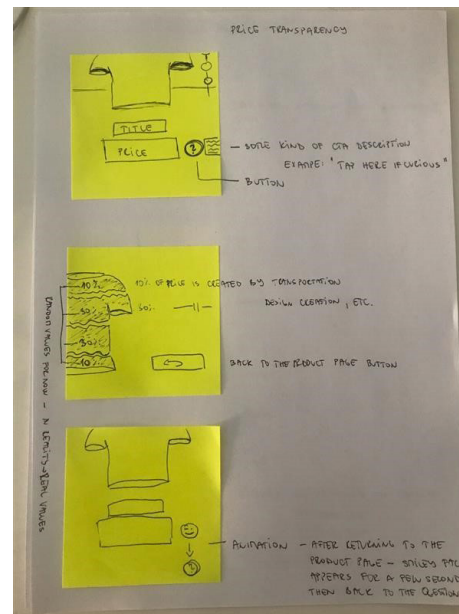 PRICE TRANSPARENCY
TITLE
PRICE
?
— SOME KIND OF CTA DESCRIPTION
EXAMPE: "TAP HERE IF CURIOUS"
BUTTON
10%
10% OF PRICE IS CREATED BY TRANSPORTATION
30%
30% —||—
DESIGN CREATION, ETC.
30%
10%
BACK TO THE PRODUCT PAGE BUTTON
RANDOM VALUES FOR NOW — IN REALITY → REAL VALUES
ANIMATION — AFTER RETURNING TO THE
PRODUCT PAGE — SMILEY FAC
APPEARS FOR A FEW SECOND
THEN BACK TO THE QUESTION